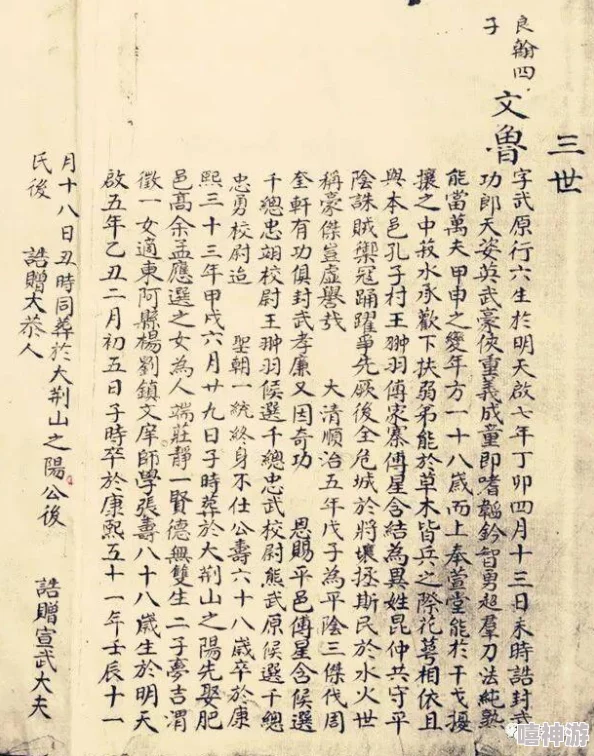 三世
良翰四子
文魯
字武原行六生於明天啟七年丁卯四月十三日未時誥封武
功郎天姿英武豪俠重義成童即嗜韜鈐智勇超羣刀法純熟
能當萬夫甲申之變年方一十八歲而上奉萱堂能於干戈擾
攘之中菽水承歡下扶弱弟能於草木皆兵之際花萼相依且
與本邑孔子村王翀羽傅家寨傅星含結為異姓昆仲共守平
陰誅賊禦冠踊躍爭先厥後全危城於將壞拯斯民於水火世
稱豪傑豈虛譽哉 大清順治五年戊子為平陰三傑代周
奎軒有功俱封武孝廉又因奇功 恩賜平邑傅星含候選
千總忠翊校尉王翀羽候選千總忠武校尉熊武原候選千總
忠勇校尉迨 聖朝一統終身不仕公壽六十八歲卒於康
熙三十三年甲戌六月廿九日子時葬於大荊山之陽先娶肥
邑高余孟應選之女為人端莊靜一賢德興雙生二子夢吉渭
徵一女適東阿縣楊劉鎮文庠師學張壽八十八歲生於明天
啟五年乙丑二月初五日子時卒於康熙五十一年壬辰十一
月十八日丑時同葬於大荊山之陽公後 誥贈宣武大夫
氏後 誥贈大恭人
嘻神游